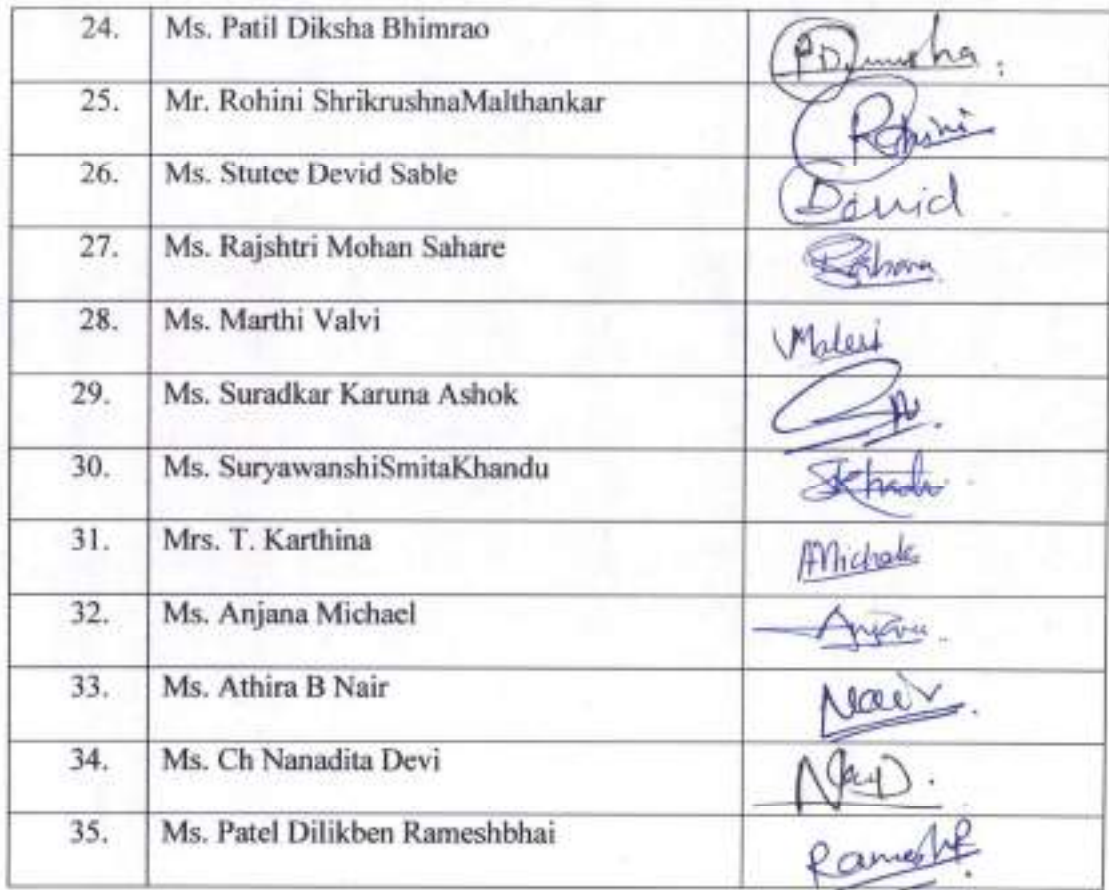 24. Ms. Patil Diksha Bhimrao
25. Mr. Rohini ShrikrushnaMalthankar Rohini
26. Ms. Stutee Devid Sable David
27. Ms. Rajshtri Mohan Sahare
28. Ms. Marthi Valvi
29. Ms. Suradkar Karuna Ashok
30. Ms. SuryawanshiSmitaKhandu
31. Mrs. T. Karthina
32. Ms. Anjana Michael
33. Ms. Athira B Nair Nair
34. Ms. Ch Nanadita Devi
35. Ms. Patel Dilikben Rameshbhai